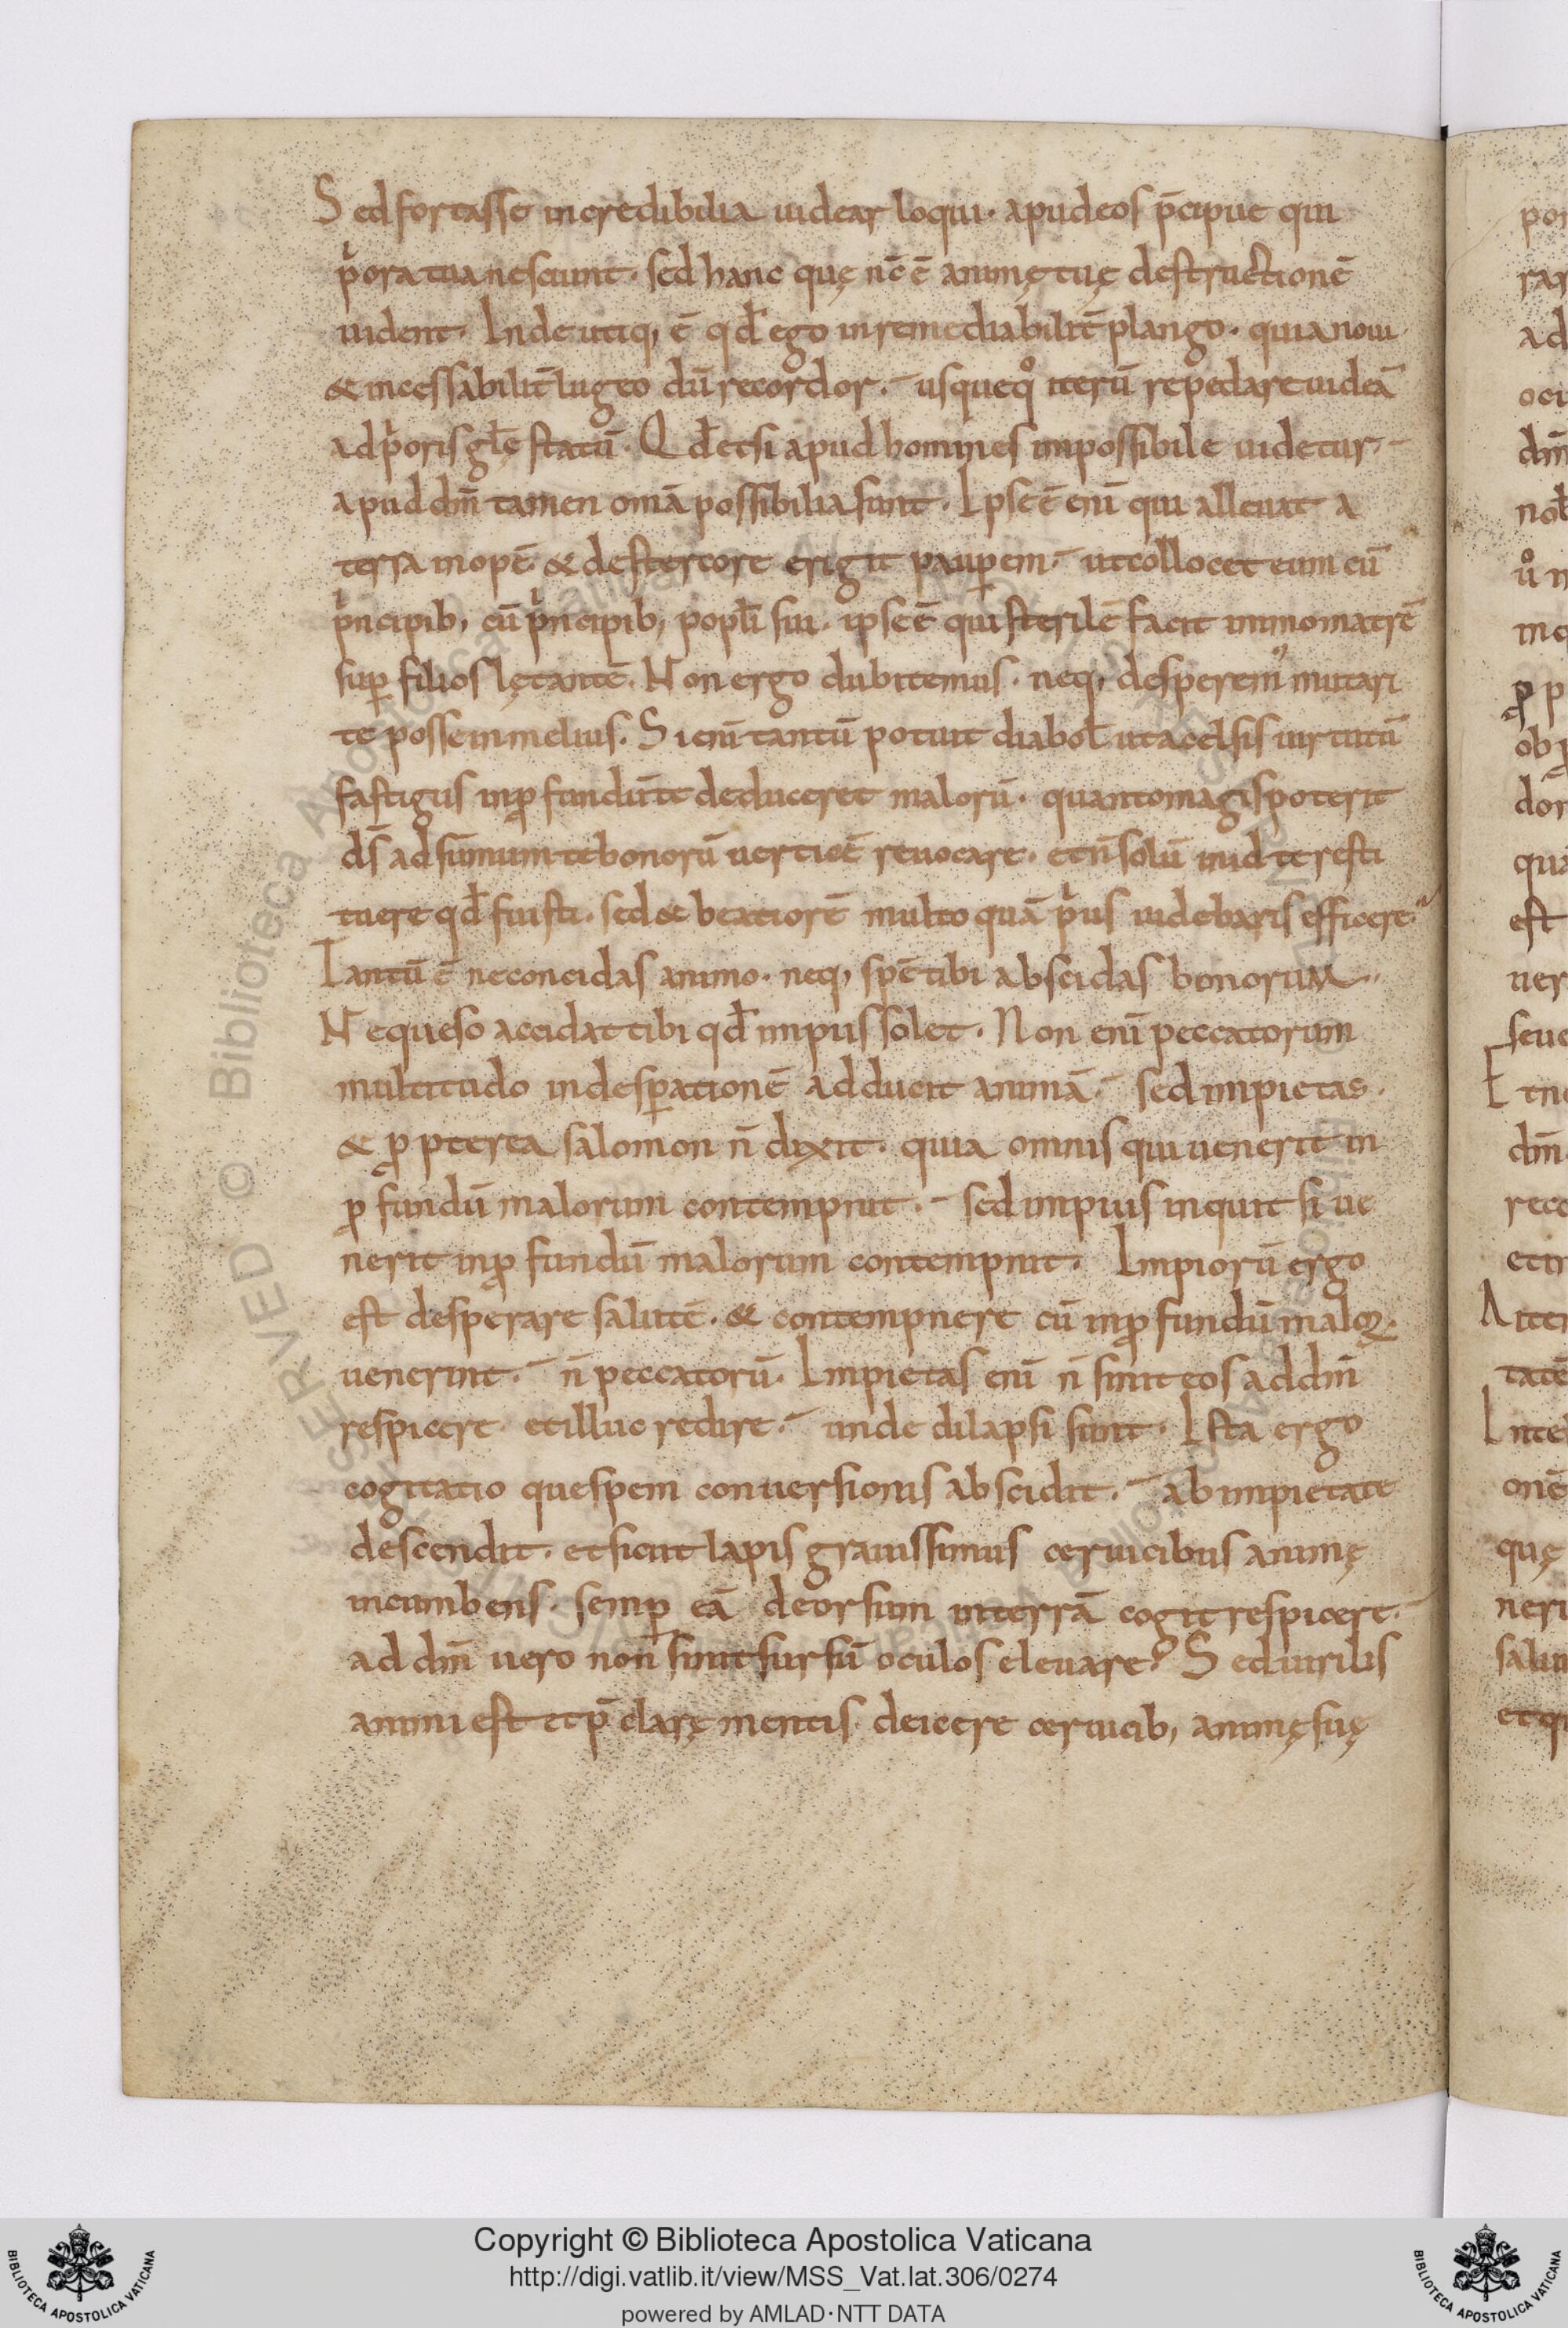 Sed fortasse incredibilia uidear loqui · apud eos p̄cipue qui
pͥora tua nesciunt · sed hanc quę nc̄ ē animę tuę destructionē
uident · Inde utiq; ē qd̄ ego inremediabilit̄ plango · quia noui
& incessabilit̄ lugeo dū recordor · usqueqͦ iterū repedare uideā
ad pͥoris glę̄ statū · Qd̄ etsi apud homines impossibile uidetur ·
apud dm̄ tamen om̄a possibilia sunt · Ipse ē eni̅ qui alleuat a
terra inopē · & de stercore erigit paup̱em · ut collocet eum cū
pͥncipib; cū pͥncipib; popl̄i sui · ipse ē qui sterilē facit immo matrē
sup̱ filios lętantē · Non ergo dubitemus · neq; desperemꝰ mutari
te posse in melius · Si eni̅ tantū potuit diabol̄ ut a celsis uirtutū
fastigiis inꝓfundū te deduceret malorū · quanto magis poterit
ds̄ ad sūmum te bonorū uerticē reuocare · et n̄ solū in id te resti
tuere qd̄ fuisti · sed & beatiorē multo quā pͥus uidebaris efficere ·
Tantū ē ne concidas animo · neq; spē tibi abscidas bonorum ·
Ne queso accidat tibi qd̄ impiis solet · Non eni̅ peccatorum
multitudo in desp̱ationē adducit animā · sed impietas ·
& ꝓpterea salomon n̄ dixit · quia omnis qui uenerit in
ꝓfundū malorum contempnit · sed impius inquit si ue
nerit inꝓfundū malorum contempnit · Impiorū ergo
est desperare salutē · & contempnere cū inꝓfundū maloꝝ
uenerint · n̄ peccatorū · Impietas eni̅ n̄ sinit eos ad dm̄
respicere · et illuc redire · unde dilapsi sunt · Ista ergo
cogitatio que spem conuersionis abscidit · ab impietate
descendit · et sicut lapis grauissimus ceruicibus animę
incumbens · semp̱ eā deorsum in terrā cogit respicere ·
ad dm̄ uero non sinit sursū oculos eleuare · Sed uirilis
animi est et p̄clarę mentis · deicere ceruicib; animę suę
Copyright © Biblioteca Apostolica Vaticana
http://digi.vatlib.it/view/MSS_Vat.lat.306/0274
powered by AMLAD·NTT DATA
BIBLIOTECA APOSTOLICA VATICANA
BIBLIOTECA APOSTOLICA VATICANA